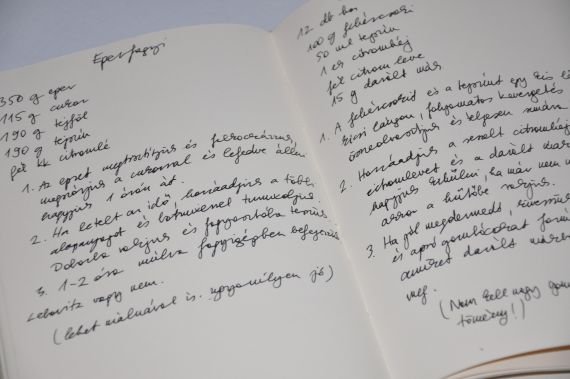 Eperfagyi
350 g eper
115 g cukor
190 g tejföl
190 g tejszín
fél kk citromlé
1. Az epret megtisztítjuk és felkockázzuk,
megszórjuk a cukorral és lefedve állni
hagyjuk 1 órán át.
2. Ha letelt az idő, hozzáadjuk a többi
alapanyagot és botmixerrel turmixoljuk.
Dobozba rakjuk és fagyasztóba tesszük.
3. 1-2 óra múlva fagyigépben befejezzük
Lebovitz vagy nem.
(lehet málnával is. ugyanolyan jó)
12 db
100 g fehércsoki
50 ml tejszín
1 citromhéj
fél citrom leve
15 g darált mák
1. A fehércsokit és a tejszínt egy kis
kicsi lángon, folyamatos kevergetés
összeolvasztjuk és teljesen simára
2. Hozzáadjuk a reszelt citromhéjat
citromlevet és a darált mákot
hagyjuk kihűlni, ha már nem
akkor a hűtőbe rakjuk.
3. Ha jól megdermedt, kivesszük
és apró gombócokat
amiket darált mákba
meg.
(Nem kell nagy
tömény!)